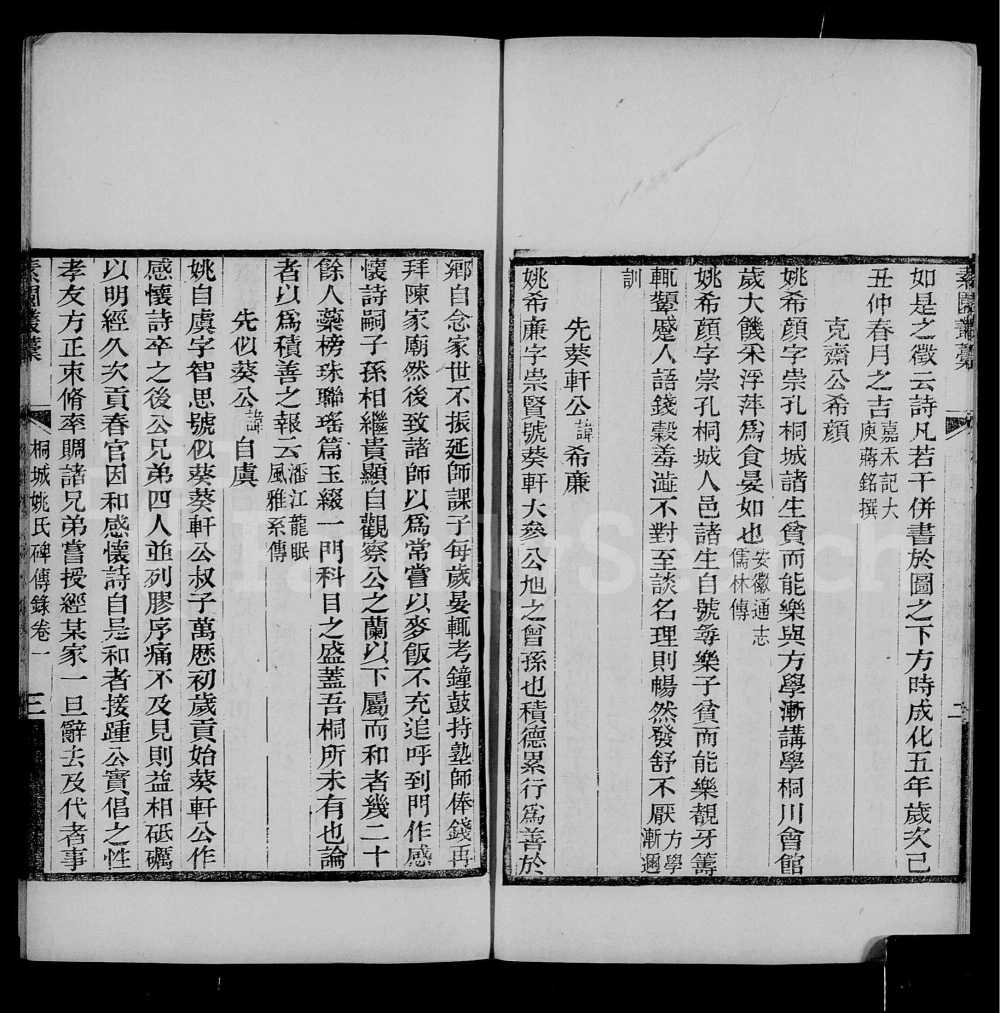 素園叢藁
二
如是之徵云詩凡若干併書於圖之下方時成化五年歲次己
丑仲春月之吉嘉禾記大
庾蔣銘撰
克齋公希顔
姚希顔字崇孔桐城諸生貧而能樂與方學漸講學桐川會館
歲大饑采浮萍爲食晏如也安徽通志
儒林傳
姚希顔字崇孔桐城人邑諸生自號尋樂子貧而能樂覩牙籌
輒顰蹙人語錢穀羞澁不對至談名理則暢然發舒不厭方學
漸邇
訓
先葵軒公諱希廉
姚希廉字崇賢號葵軒大參公旭之曾孫也積德累行爲善於
鄉自念家世不振延師課子每歲晏輒考鐘鼓持塾師俸錢再
拜陳家廟然後致諸師以爲常嘗以麥飯不充追呼到門作感
懷詩嗣子孫相繼貴顯自觀察公之蘭以下屬而和者幾二十
餘人蘂榜珠聯瑤篇玉綴一門科目之盛蓋吾桐所未有也論
者以爲積善之報云潘江龍眠
風雅系傳
先似葵公諱自虞
姚自虞字智思號似葵葵軒公叔子萬歷初歲貢始葵軒公作
感懷詩卒之後公兄弟四人並列膠序痛不及見則益相砥礪
以明經久次貢春官因和感懷詩自是和者接踵公實倡之性
孝友方正束脩率賙諸兄弟嘗授經某家一旦辭去及代者事
素園叢藁
桐城姚氏碑傳錄卷一
三
FamilySearch